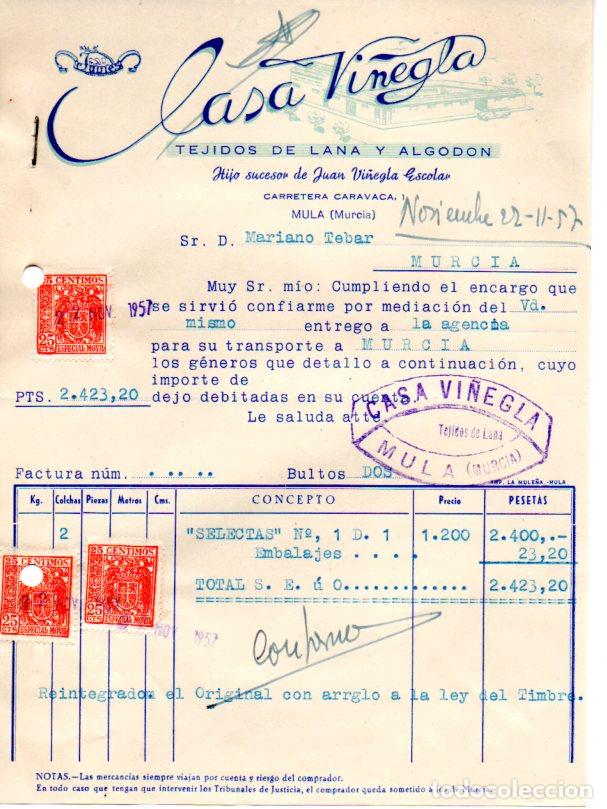 Casa Viñegla
TEJIDOS DE LANA Y ALGODON
Hijo sucesor de Juan Viñegla Escolar
CARRETERA CARAVACA, 1
MULA (Murcia)
Noviembre 22-11-57
Sr. D. Mariano Tebar
MURCIA
Muy Sr. mío: Cumpliendo el encargo que
se sirvió confiarme por mediación del Vd.
mismo entrego a la agencia
para su transporte a MURCIA
los géneros que detallo a continuación, cuyo
importe de
PTS. 2.423,20 dejo debitadas en su cuenta.
Le saluda atte.
25 CENTIMOS
25 CTS ESPECIAL MOVIL
NOV. 1957
CASA VIÑEGLA
Tejidos de Lana
MULA (MURCIA)
Factura núm. . .. .. Bultos DOS
IMP. LA MULEÑA -MULA
Kg. Colchas Piezas Metros Cms. CONCEPTO Precio PESETAS
2 "SELECTAS" Nº, 1 D. 1 1.200 2.400,.-
Embalajes . . . . 23,20
TOTAL S. E. ú O............ 2.423,20
25 CENTIMOS
25 CTS ESPECIAL MOVIL
25 CENTIMOS
25 CTS ESPECIAL MOVIL
NOV 1957
Conforme
Reintegrado en el Original con arrglo a la ley del Timbre.
NOTAS.—Las mercancías siempre viajan por cuenta y riesgo del comprador.
En todo caso que tengan que intervenir los Tribunales de Justicia, el comprador queda sometido a los de
todocoleccion